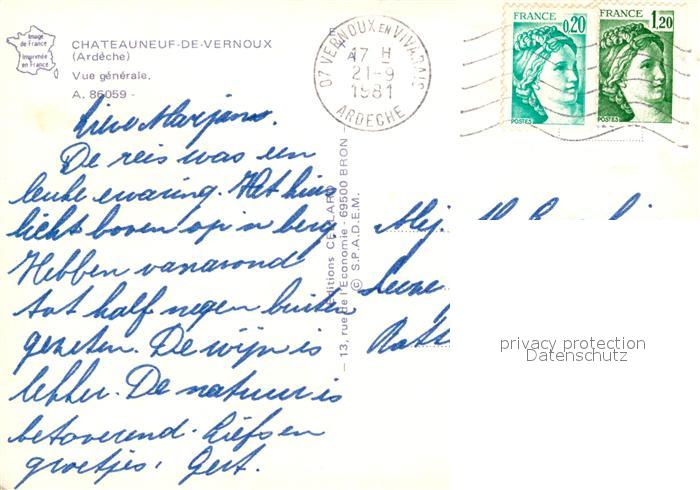 Image
de France
Imprimée
en France
CHATEAUNEUF-DE-VERNOUX
(Ardèche)
Vue générale.
A. 86059 -
07 VERNOUX EN VIVARAIS
17 H
21-9
1981
ARDECHE
FRANCE
0,20
POSTES
FRANCE
1,20
POSTES
Lieve Marjans.
De reis was een
leuke ervaring. Het huis
licht boven op 'n berg
Hebben vanavond
tot half negen buiten
gezeten. De wijn is
lekker. De natuur is
betoverend. Liefs en
groetjes, Gert.
Editions CELLARD
- 13, rue de l'Economie - 69500 BRON -
© S.P.A.D.E.M.
Mej.
privacy protection
Datenschutz